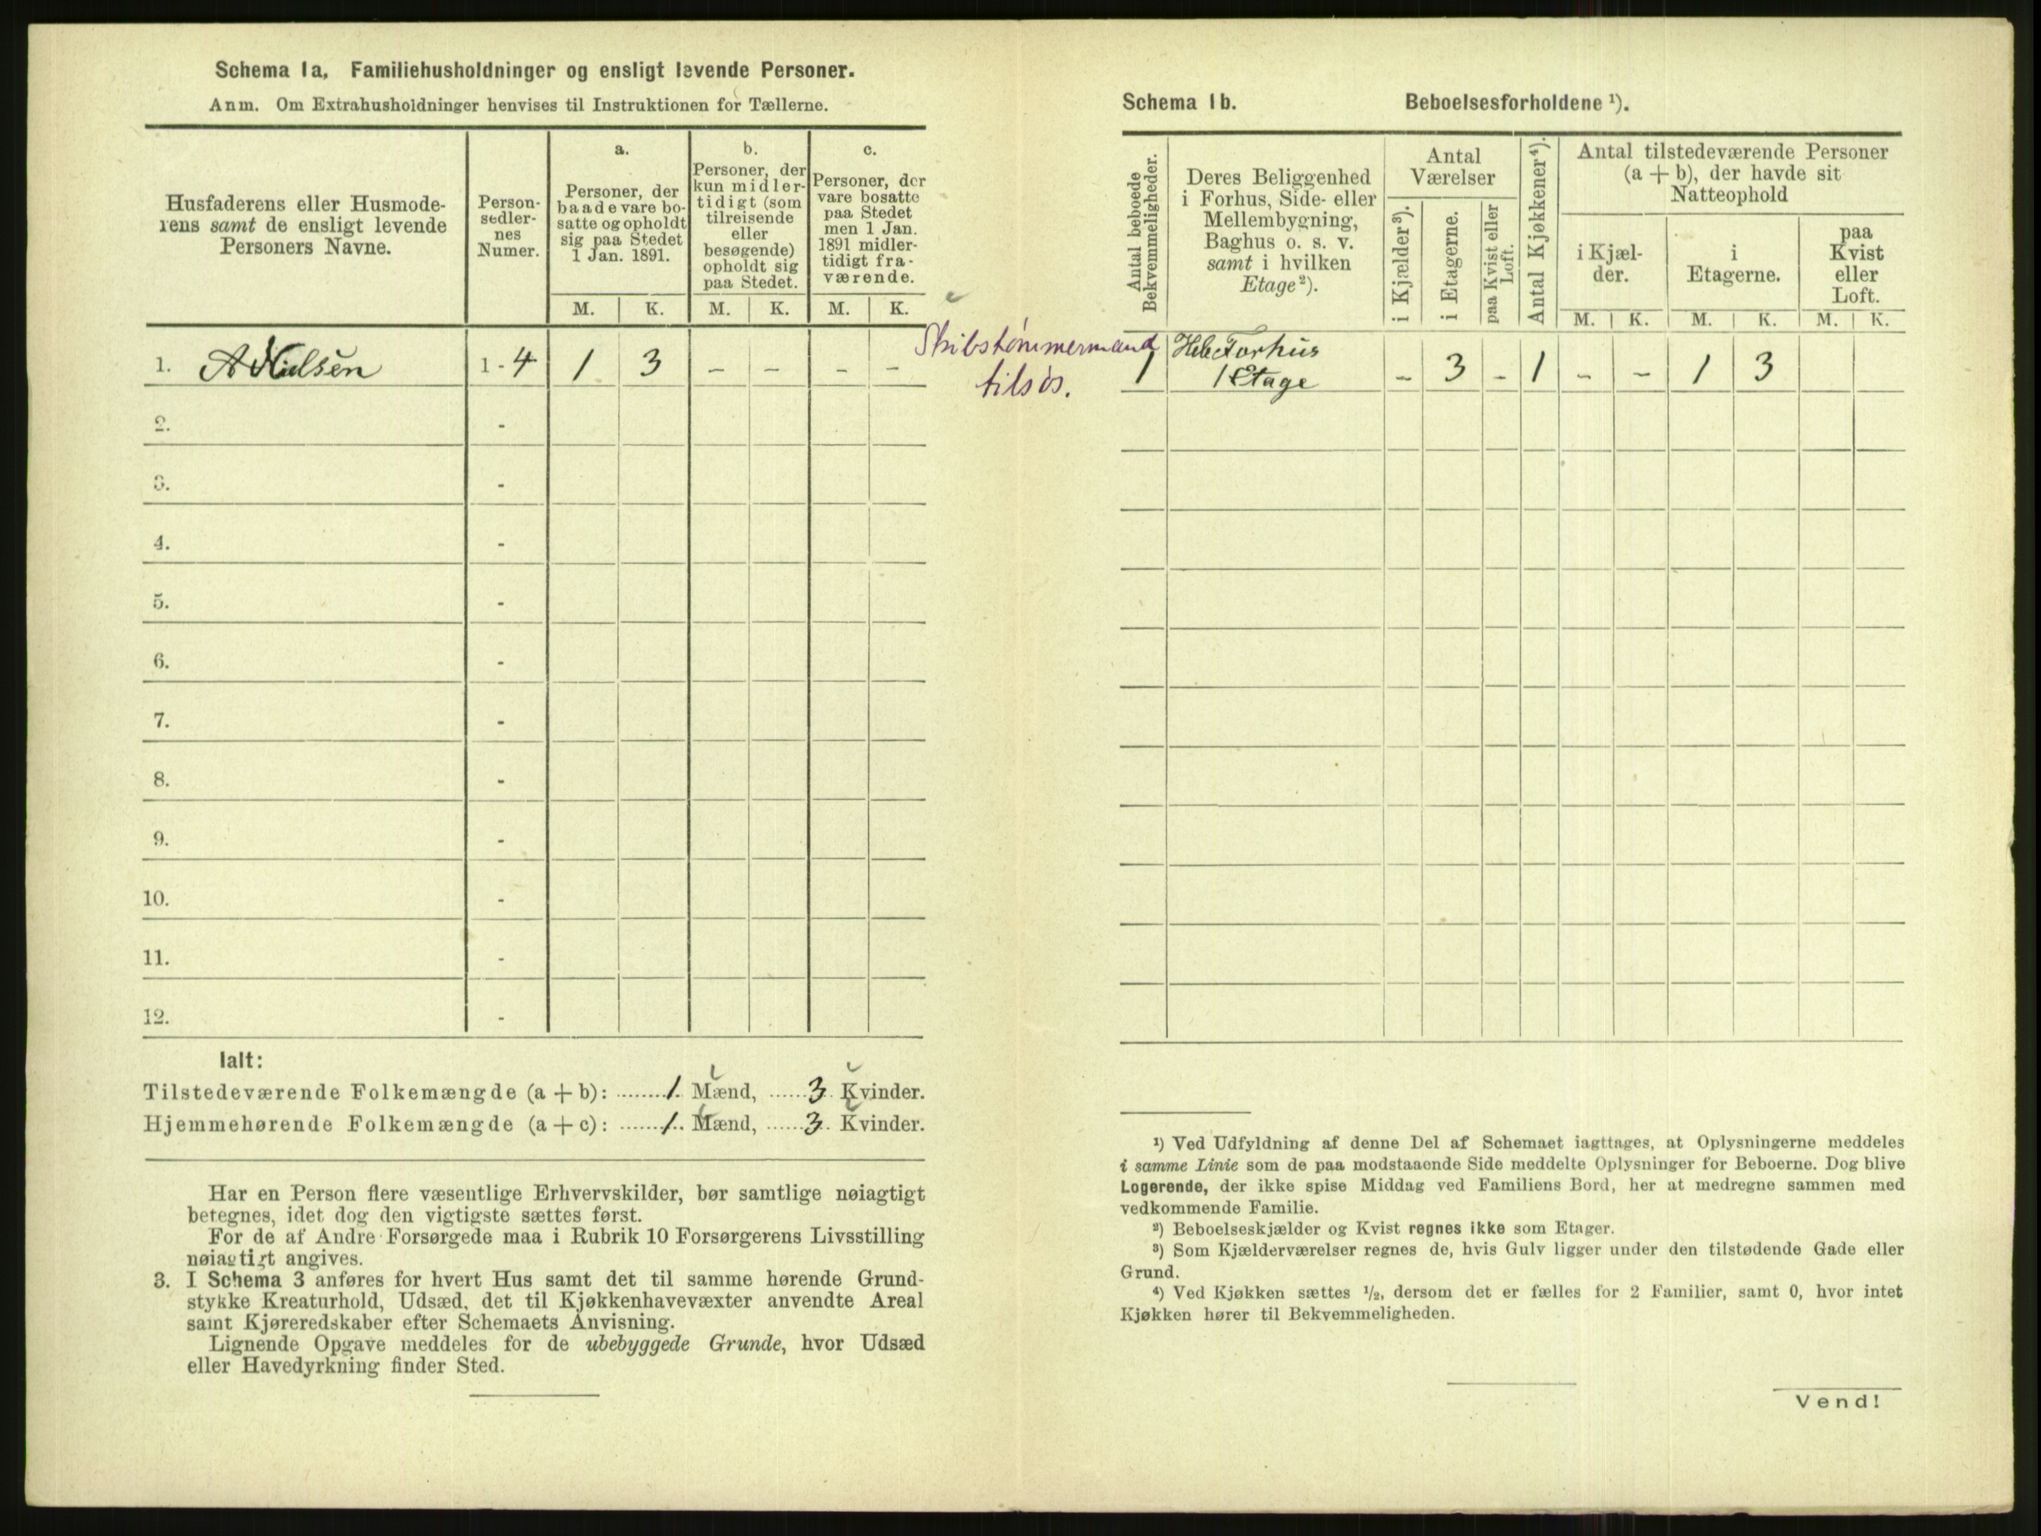 Schema 1a, Familiehusholdninger og ensligt levende Personer.
Anm. Om Extrahusholdninger henvises til Instruktionen for Tællerne.
Husfaderens eller Husmode-
rens samt de ensligt levende
Personers Navne.
Person-
sedler-
nes
Numer.
a.
Personer, der
baade vare bo-
satte og opholdt
sig paa Stedet
1 Jan. 1891.
b.
Personer, der
kun midler-
tidigt (som
tilreisende
eller
besøgende)
opholdt sig
paa Stedet.
c.
Personer, der
vare bosatte
paa Stedet
men 1 Jan.
1891 midler-
tidigt fra-
værende.
M. K. M. K. M. K.
1. A Nilsen 1 - 4 1 3 – – – –
Skibstømmermand
tilsøs.
2. -
3. -
4. -
5. -
6. -
7. -
8. -
9. -
10. -
11. -
12. -
Ialt:
Tilstedeværende Folkemængde (a + b): ........1. Mænd, ......3. Kvinder.
Hjemmehørende Folkemængde (a + c): ......1.. Mænd, ......3. Kvinder.
Har en Person flere væsentlige Erhvervskilder, bør samtlige nøiagtigt
betegnes, idet dog den vigtigste sættes først.
For de af Andre Forsørgede maa i Rubrik 10 Forsørgerens Livsstilling
nøiagtigt angives.
3. I Schema 3 anføres for hvert Hus samt det til samme hørende Grund-
stykke Kreaturhold, Udsæd, det til Kjøkkenhavevæxter anvendte Areal
samt Kjøreredskaber efter Schemaets Anvisning.
Lignende Opgave meddeles for de ubebyggede Grunde, hvor Udsæd
eller Havedyrkning finder Sted.
Schema 1b. Beboelsesforholdene ¹).
Antal beboede
Bekvemmeligheder.
Deres Beliggenhed
i Forhus, Side- eller
Mellembygning,
Baghus o. s. v.
samt i hvilken
Etage²).
Antal
Værelser
i Kjælder³).
i Etagerne.
paa Kvist eller
Loft.
Antal Kjøkkener⁴).
Antal tilstedeværende Personer
(a + b), der havde sit
Natteophold
i Kjæl-
der.
i
Etagerne.
paa
Kvist
eller
Loft.
M. K. M. K. M. K.
1 Forhus
1 Etage – 3 - 1 – – 1 3
¹) Ved Udfyldning af denne Del af Schemaet iagttages, at Oplysningerne meddeles
i samme Linie som de paa modstaaende Side meddelte Oplysninger for Beboerne. Dog blive
Logerende, der ikke spise Middag ved Familiens Bord, her at medregne sammen med
vedkommende Familie.
²) Beboelseskjælder og Kvist regnes ikke som Etager.
³) Som Kjælderværelser regnes de, hvis Gulv ligger under den tilstødende Gade eller
Grund.
⁴) Ved Kjøkken sættes ½, dersom det er fælles for 2 Familier, samt 0, hvor intet
Kjøkken hører til Bekvemmeligheden.
Vend!